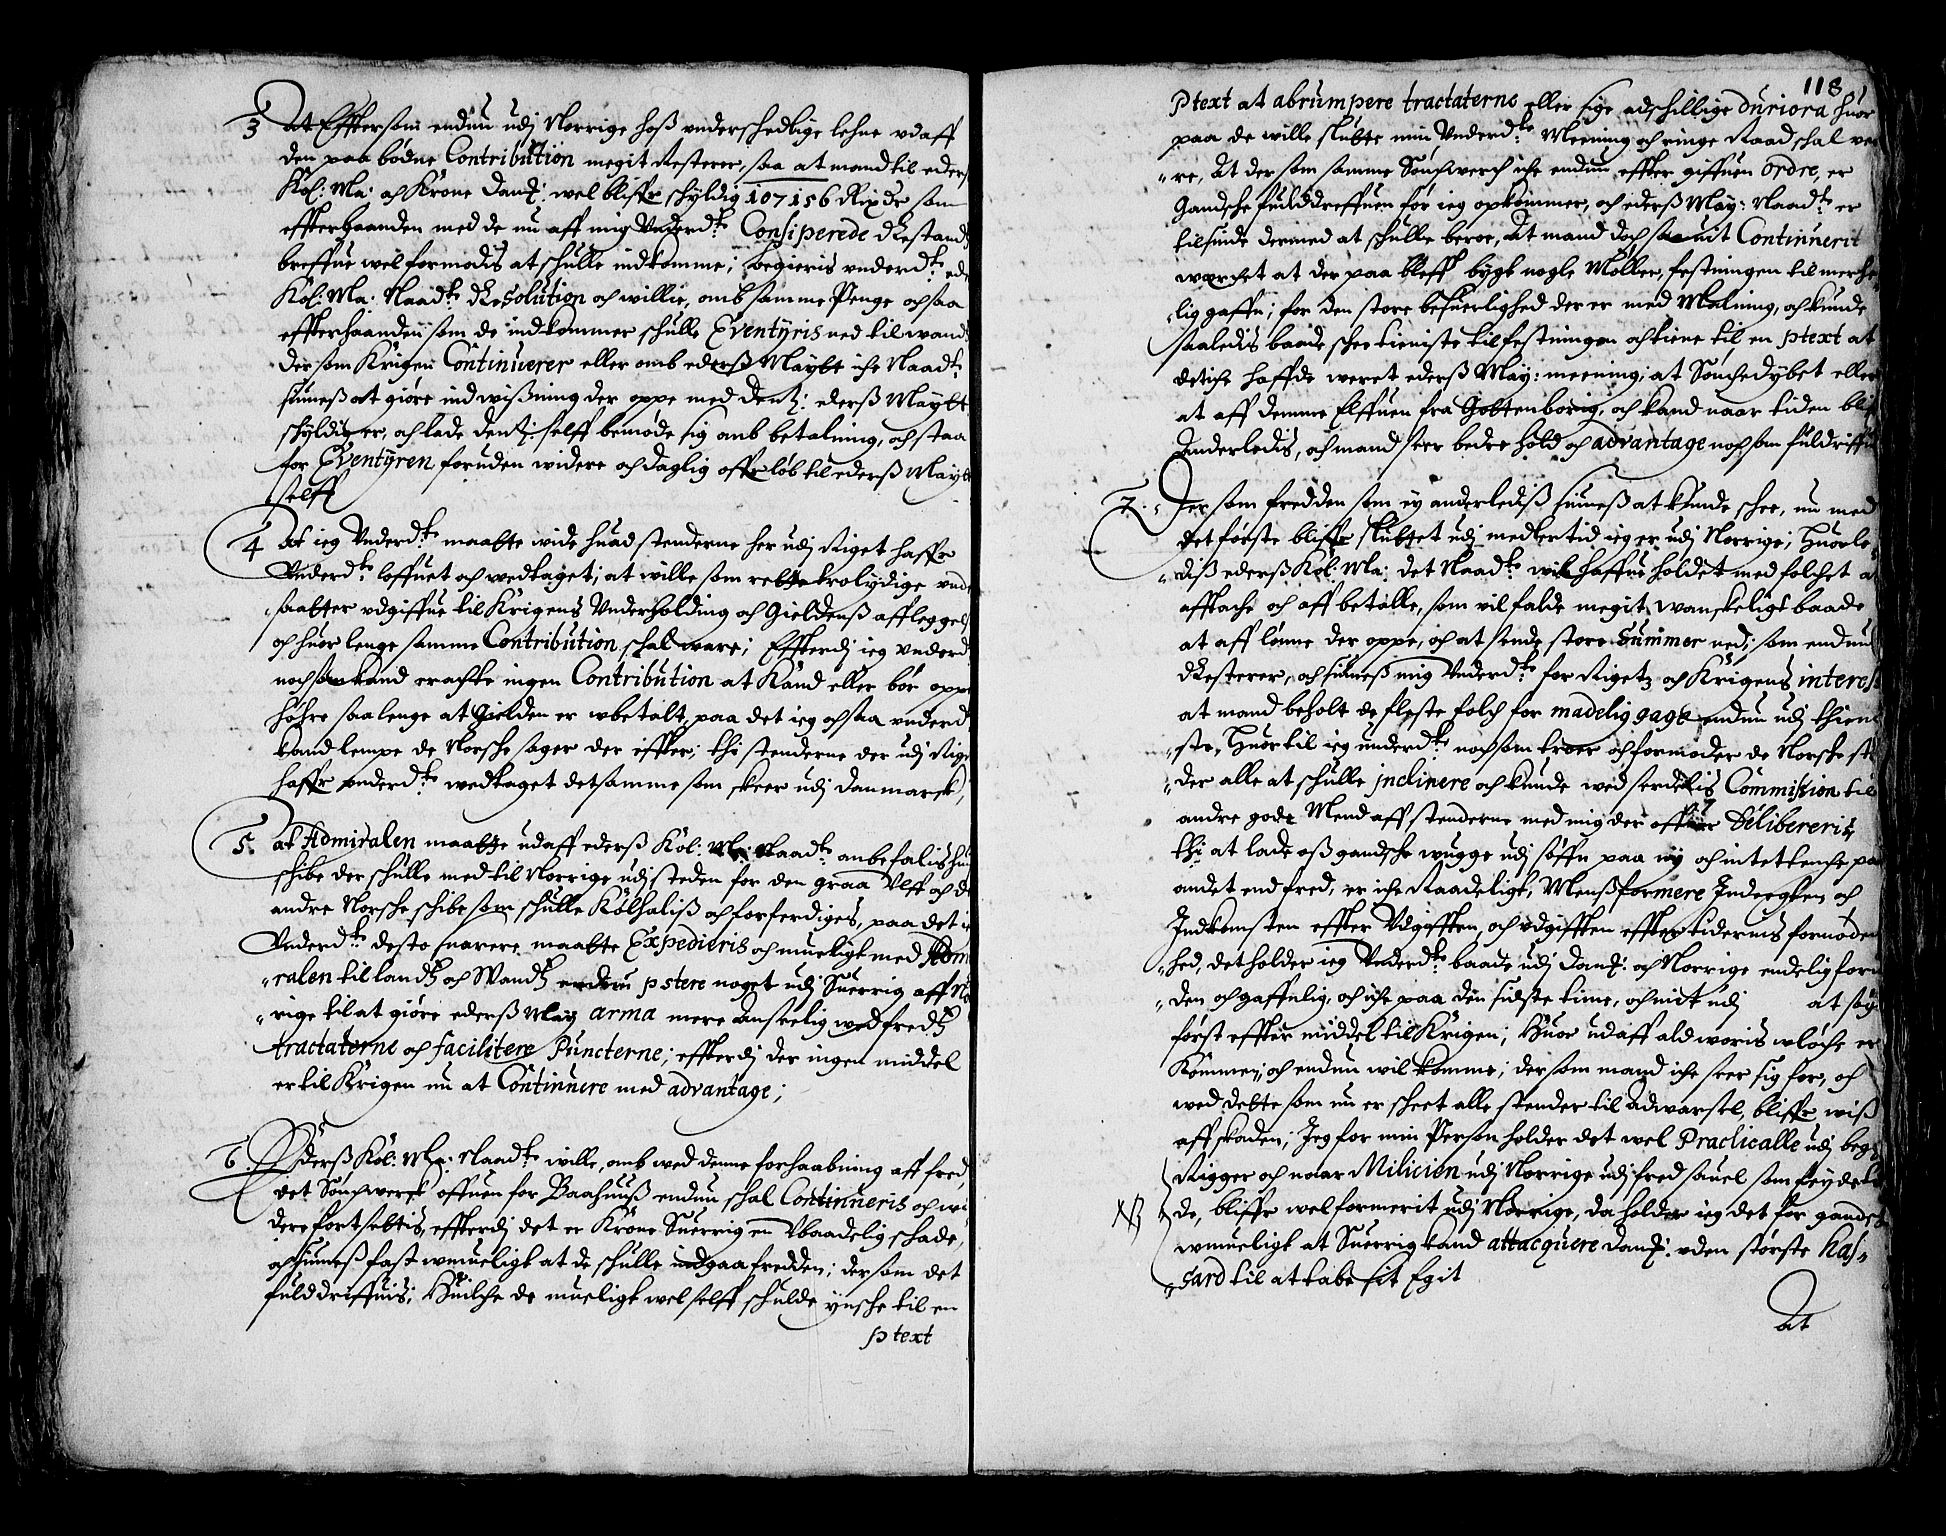 3 At Effttersom endnu udj Norrige hoß underschedlige lehne udaff
den paabødne Contribution megit Resterer, saa at mand til eders
Kol: Ma: och Krone Danz: wel bliffr schyldig 107156 Rixdr som
effterhaanden med de nu aff mig Underdt. Consiperede Restands
breffue wel formodis at schulle indkomme; begieris underdt. eders
Kol: Ma: Naadt. Resolution och willie, omb samme Penge ochsaa
effterhaanden som de indkommer schulle Eventyris ned til wands
dersom Krigen Continuerer eller omb ederß Maytt iche Naadt.
siuneß at giøre indwißning der oppe med denz: ederß Maytt
schyldig er, och lade denz: selff bemøde sig omb betalning, och staa
for Eventyren foruden widere och daglig offrløb til ederß Maytt
selff
4 At ieg Underdt. maatte wide huad stenderne her udj Riget haffr
Underdt. loffuet och wedtaget; at wille som rette trolydige under
saatter udgiffue til Krigens Underholding och Gieldenß affleggelse
och huor lenge samme Contribution schal ware; Effterdj ieg underdt.
nochsom kand erachte ingen Contribution at Kand eller bør opp
høhre saalenge at Gielden er ubetalt, paa det ieg ochsaa underdt.
kand lempe de Norsche sager der effter; thi stenderne der udj Riget
haffr underdt. wedtaget detsamme som skeer udj Danmarck,
5. at Admiralen maatte udaff ederß Kol: Ma: Naadt. anbefalis hui
schibe der schulle med til Norrige udj steden for den graa Ulff och de
andre Norsche schibe som schulle Kølhaliß och forferdiges, paa det ieg
Underdt. desto snarere maatte Expedieris och mueligt med Admi
ralen til landz och Wandz endnu pstere noget udj Suerrig aff No
rige til at giøre ederß May arma mere Anseelig wed fredz
tractaterne och facilitere Puncterne; effterdj der ingen middel
er til Krigen nu at Continuere med advantage;
6. Ederß Kol: Ma: Naadt. wille, omb wed denne forhaabning aff fred
det Sønchwerck offuen for Baahuuß endnu schal Continueris och wi
dere fortsettis, effterdj det er Krone Suerrig en Ubaadelig schade,
och siuneß fast umueligt at de schulle indgaa fredden; dersom det
fulddriffuis; Huilche de mueligt wel selff schulde ynsche til en
ptext
118
Ptext at abrumpere tractaterne eller sige adschillige duriora huor
paa de wille slutte min Underdt. Meening och ringe Raad schal we
re, At dersom samme Sønchwerch iche endnu effter giffuen ordre, er
Gandsche fulddreffuen før ieg opkommer, och ederß May: Naadt. er
tilsinde dermed at schulle beroe, At mand doch saa uit Continuerit
werchet at der paa bleff bygt nogle Møller, festningen til merche
lig gaffn; for den store besuerlighed der er med Malning, och kunde
saaledis baade schee tieniste til festningen och tiene til en ptext at
det iche haffde weret ederß May: meening; at Sønchedybet eller
at aff demme Elffuen fra Gottenborig, och kand naar tiden bliffr
Anderledis, och mand seer bedre hold och advantage nochsom fuldriffuis
7. Dersom fredden som ey anderlediß siuneß at kunde schee, nu med
det første bliffr sluttet udj medlertid ieg er udj Norrige; Huorle
diß ederß Kol: Ma: det Naadt. wil haffue holdet med folchet at
afftache och aff betalle, som vil falde megit wanskeligt baade
at aff lønne der oppe, och at sende store Summer ned; som endnu
Resterer, och siuneß mig Underdt. for Rigetz och Krigens interesse
at mand beholt de fleste folch for madelig gage endnu udj thieni
ste, Huortil ieg underdt. nochsom troer och formoder de Norske sten
der alle at schulle inclinere och kunde wed serdelis Commission til
andre gode Mend aff stenderne med mig der offuer delibereris,
thi at lade oß gandsche wugge udj søffn paa ny och intet tenche paa
andet end fred, er iche Raadeligt, Menß formere Indtegten och
Indkomsten effter Udgifften, och udgifften effter tidernis fornøden
hed, det holder ieg Underdt. baade udj Danz: och Norrige endelig forn
den och gaffnlig, och iche paa den sidste time, och nit udj at søge
først effter middel til Krigen; Huor udaff ald woris uløche er
Kommen; och endnu wil komme; dersom mand iche seer sig for, och
wed dette som nu er scheet alle stender til Adwarsel, bliffr wiß
aff skaden; Jeg for min Person holder det wel Practicalle udj begge
Rigger och naar Milicien udj Norrige udj fred sauel som feydeti
NB de, bliffr wel formerit udj Norrige, da holder ieg det for gandsche
umueligt at Suerrig kand attacquere Danz: uden største has
sard til at tabe sit Egit
At